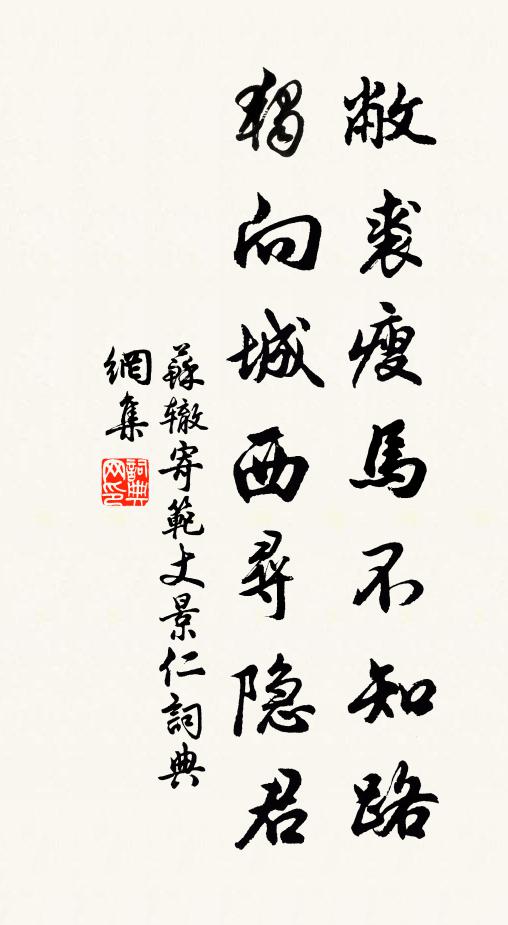 敝裘瘦馬不知路
獨向城西尋隐君
蘇辙寄範丈景仁詞典
網集
詞典
网印